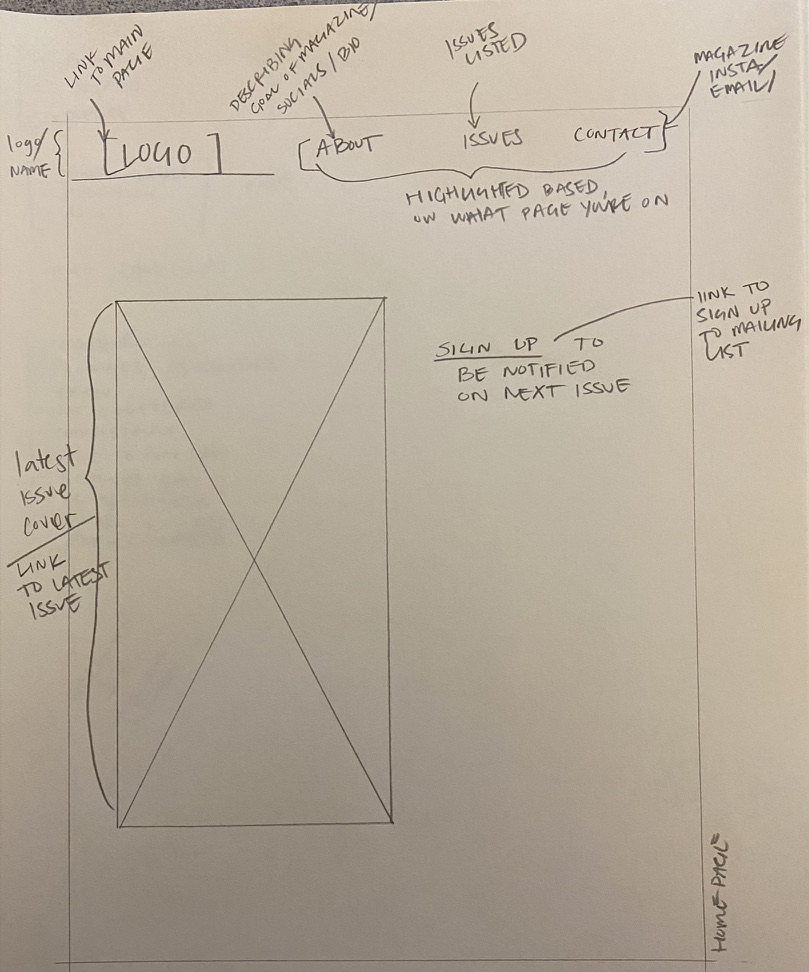 LINK
TO MAIN
PAGE
DESCRIBING
GOAL OF MAGAZINE/
SOCIALS/BIO
ISSUES
LISTED
MAGAZINE
INSTA/
EMAIL/
logo/
NAME
[LOGO]
[ABOUT ISSUES CONTACT]
HIGHLIGHTED BASED
ON WHAT PAGE YOU'RE ON
LINK TO
SIGN UP
TO MAILING
LIST
SIGN UP TO
BE NOTIFIED
ON NEXT ISSUE
latest
ISSUE
COVER
LINK
TO LATEST
ISSUE
HOME PAGE